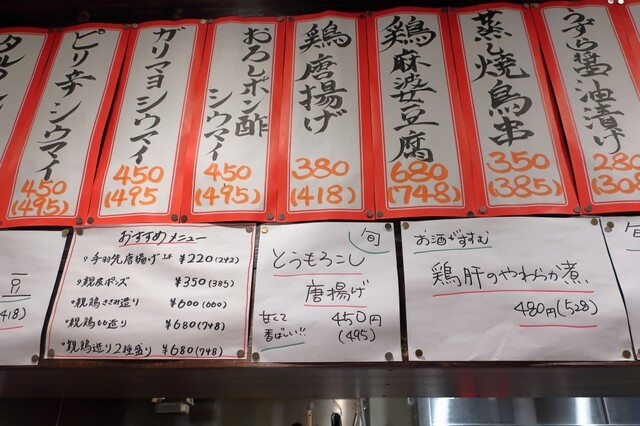 タル
ピリ辛シウマイ
450
(495)
ガリマヨシウマイ
450
(495
おろしポン酢
シウマイ
450
(495)
鶏唐揚げ
380
(418)
鶏麻婆豆腐
680
(748)
蒸し焼鳥串
350
(385)
うずら醤油漬け
280
(308)
418)
おすすめメニュー
・手羽先唐揚げ2本 ¥220(242)
・親皮ポンズ ¥350(385)
・親鶏ささみ造り ¥600(660)
・親鶏もも造り ¥680(748)
・親鶏造り2種盛り ¥680(748)
旬
とうもろこし
唐揚げ
甘くて
香ばしい!!
450円
(495)
お酒がすすむ
鶏肝のやわらか煮
480円(528)
旬